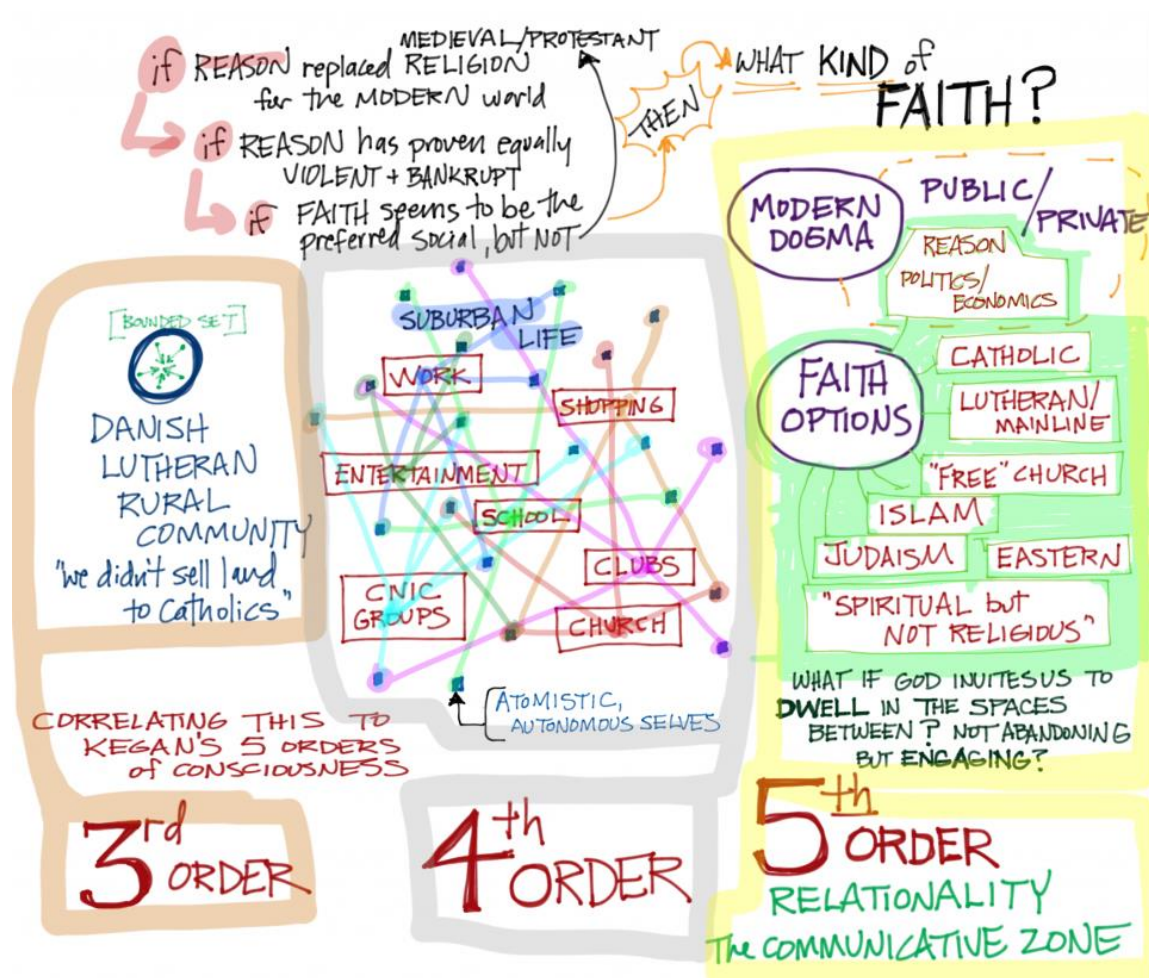 MEDIEVAL/PROTESTANT
if REASON replaced RELIGION
for the MODERN world
if REASON has proven equally
VIOLENT + BANKRUPT
if FAITH seems to be the
preferred social, but NOT
THEN
WHAT KIND of
FAITH?
[BOUNDED SET]
DANISH
LUTHERAN
RURAL
COMMUNITY
"we didn't sell land
to Catholics"
SUBURBAN
LIFE
WORK
SHOPPING
ENTERTAINMENT
SCHOOL
CLUBS
CIVIC
GROUPS
CHURCH
ATOMISTIC,
AUTONOMOUS SELVES
MODERN
DOGMA
PUBLIC/
PRIVATE
REASON
POLITICS/
ECONOMICS
FAITH
OPTIONS
CATHOLIC
LUTHERAN/
MAINLINE
"FREE" CHURCH
ISLAM
JUDAISM
EASTERN
"SPIRITUAL but
NOT RELIGIOUS"
WHAT IF GOD INVITES US TO
DWELL IN THE SPACES
BETWEEN? NOT ABANDONING
BUT ENGAGING?
CORRELATING THIS TO
KEGAN'S 5 ORDERS
of CONSCIOUSNESS
3rd
ORDER
4th
ORDER
5th
ORDER
RELATIONALITY
The COMMUNICATIVE ZONE